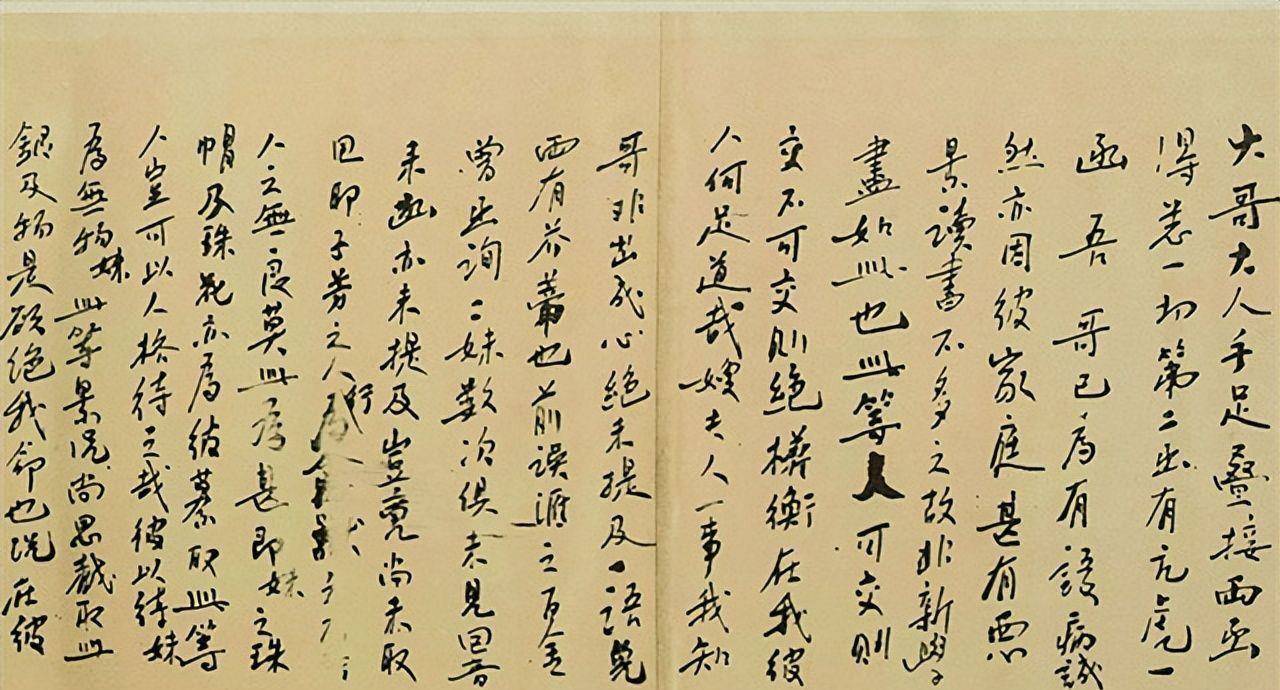 大哥大人手足疊接兩函
得悉一切第二函有元虎一
函吾哥已為有誤病誠
然亦因彼家庭甚有惡
景讀書不多之故非新學
盡如此也此等人可交則
交不可交則絕權衡在我彼
人何足道哉嫂夫人一事我知
哥非出成心絕未提及一語兌
西有芥蒂也前誤匯之百金
曾函詢二妹數次俱未見回音
來函亦未提及豈竟尚未取
回即子芳之人行為
人之無良莫此為甚即妹之珠
帽及珠花亦為彼篡取此等
人豈可以人格待之哉彼以待妹
為無物妹此等景況尚思截取此
銀及物是欲絕我命也況在彼